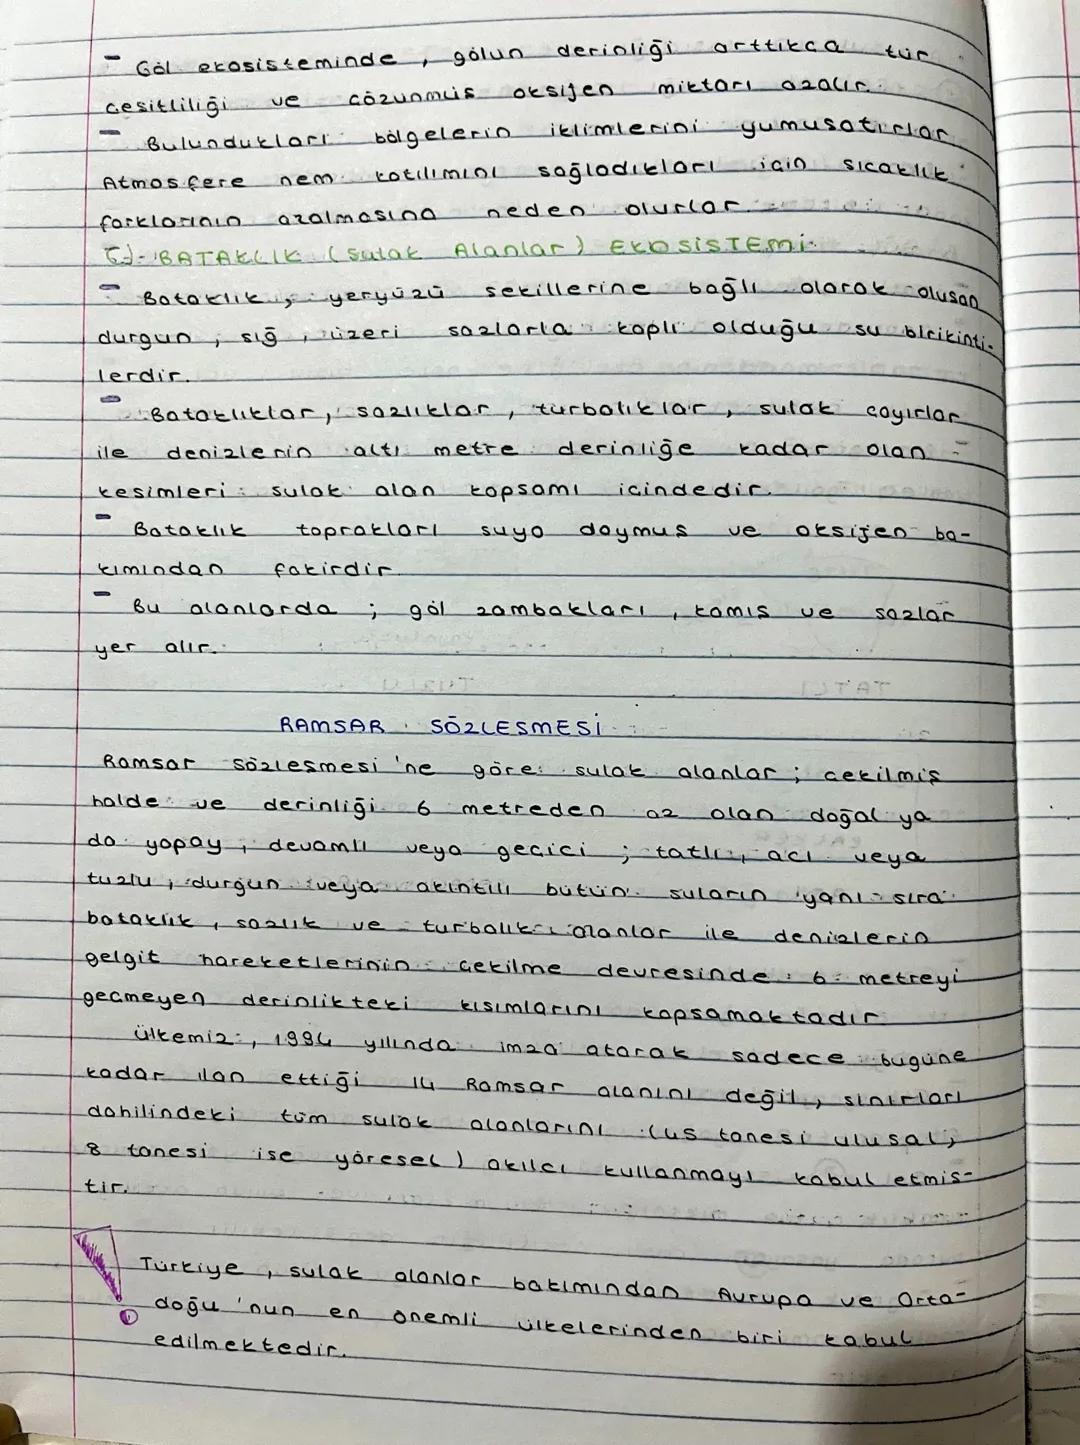 - Göl ekosisteminde, gölun derinliği arttıkca tür
cesitliliği ve cözunmüs oksijen miktarı azalır.
- Bulundukları bölgelerin iklimlerini yumusatırlar.
Atmosfere nem katılımını sağladıkları icin sıcaklık
farklarının azalmasına neden olurlar.
C)- BATAKLIK (Sulak Alanlar) EKOSİSTEMİ
- Bataklık; yeryüzü sekillerine bağlı olarak olusan
durgun, sığ, üzeri sazlarla kaplı olduğu su birikinti-
lerdir.
- Bataklıklar, sazlıklar, turbalıklar, sulak cayırlar
ile denizlerin altı metre derinliğe kadar olan
kesimleri sulak alan kapsamı icindedir.
- Bataklık toprakları suya doymus ve oksijen ba-
kımından fakirdir.
- Bu alanlarda; göl zambakları, kamıs ve sazlar
yer alır.
RAMSAR SÖZLESMESİ
Ramsar sözlesmesi'ne göre; sulak alanlar; cekilmis
halde ve derinliği 6 metreden az olan doğal ya
da yapay, devamlı veya gecici; tatlı, acı veya
tuzlu, durgun veya akıntılı bütün suların yanı sıra
bataklık, sazlık ve turbalık alanlar ile denizlerin
gelgit hareketlerinin cekilme devresinde 6 metreyi
gecmeyen derinlikteki kısımlarını kapsamaktadır.
ülkemiz, 1994 yılında imza atarak sadece bugüne
kadar ilan ettiği 14 Ramsar alanını değil, sınırları
dahilindeki tüm sulak alanlarını (45 tanesi ulusal,
8 tanesi ise yöresel) akılcı kullanmayı kabul etmis-
tir.
Türkiye, sulak alanlar bakımından Avrupa ve Orta-
doğu'nun en önemli ülkelerinden biri kabul
edilmektedir.